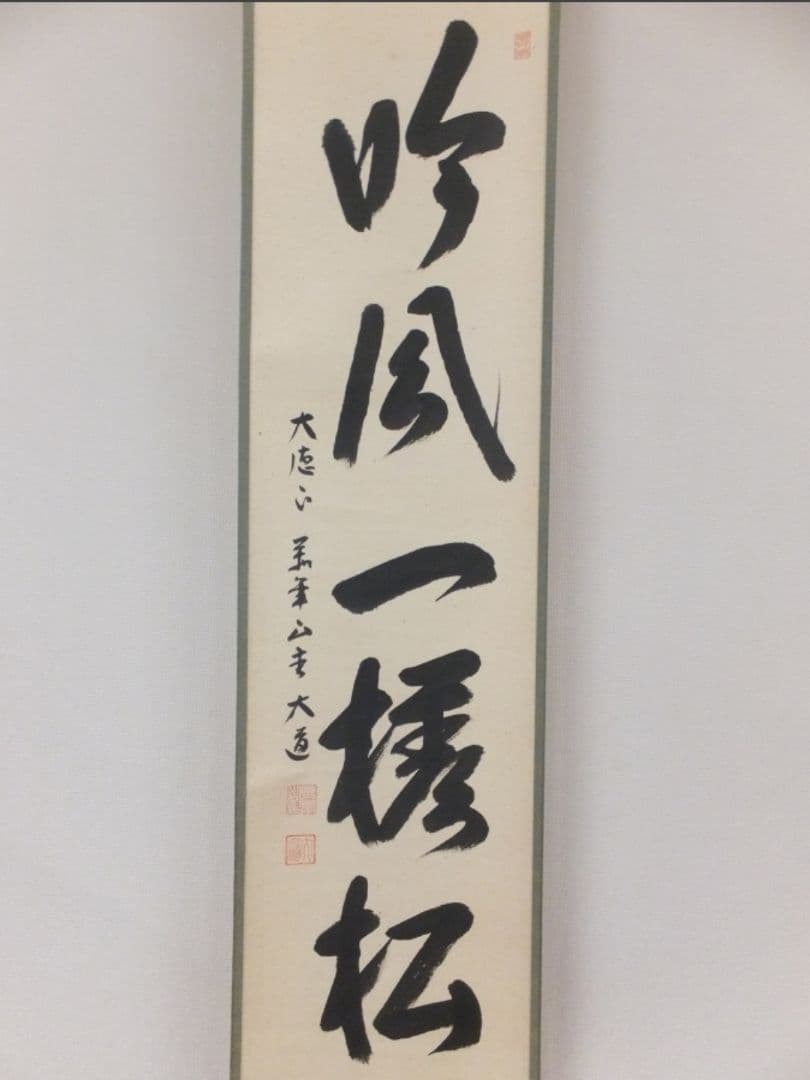 吟風一様松
大徳下 萬年山主 大道